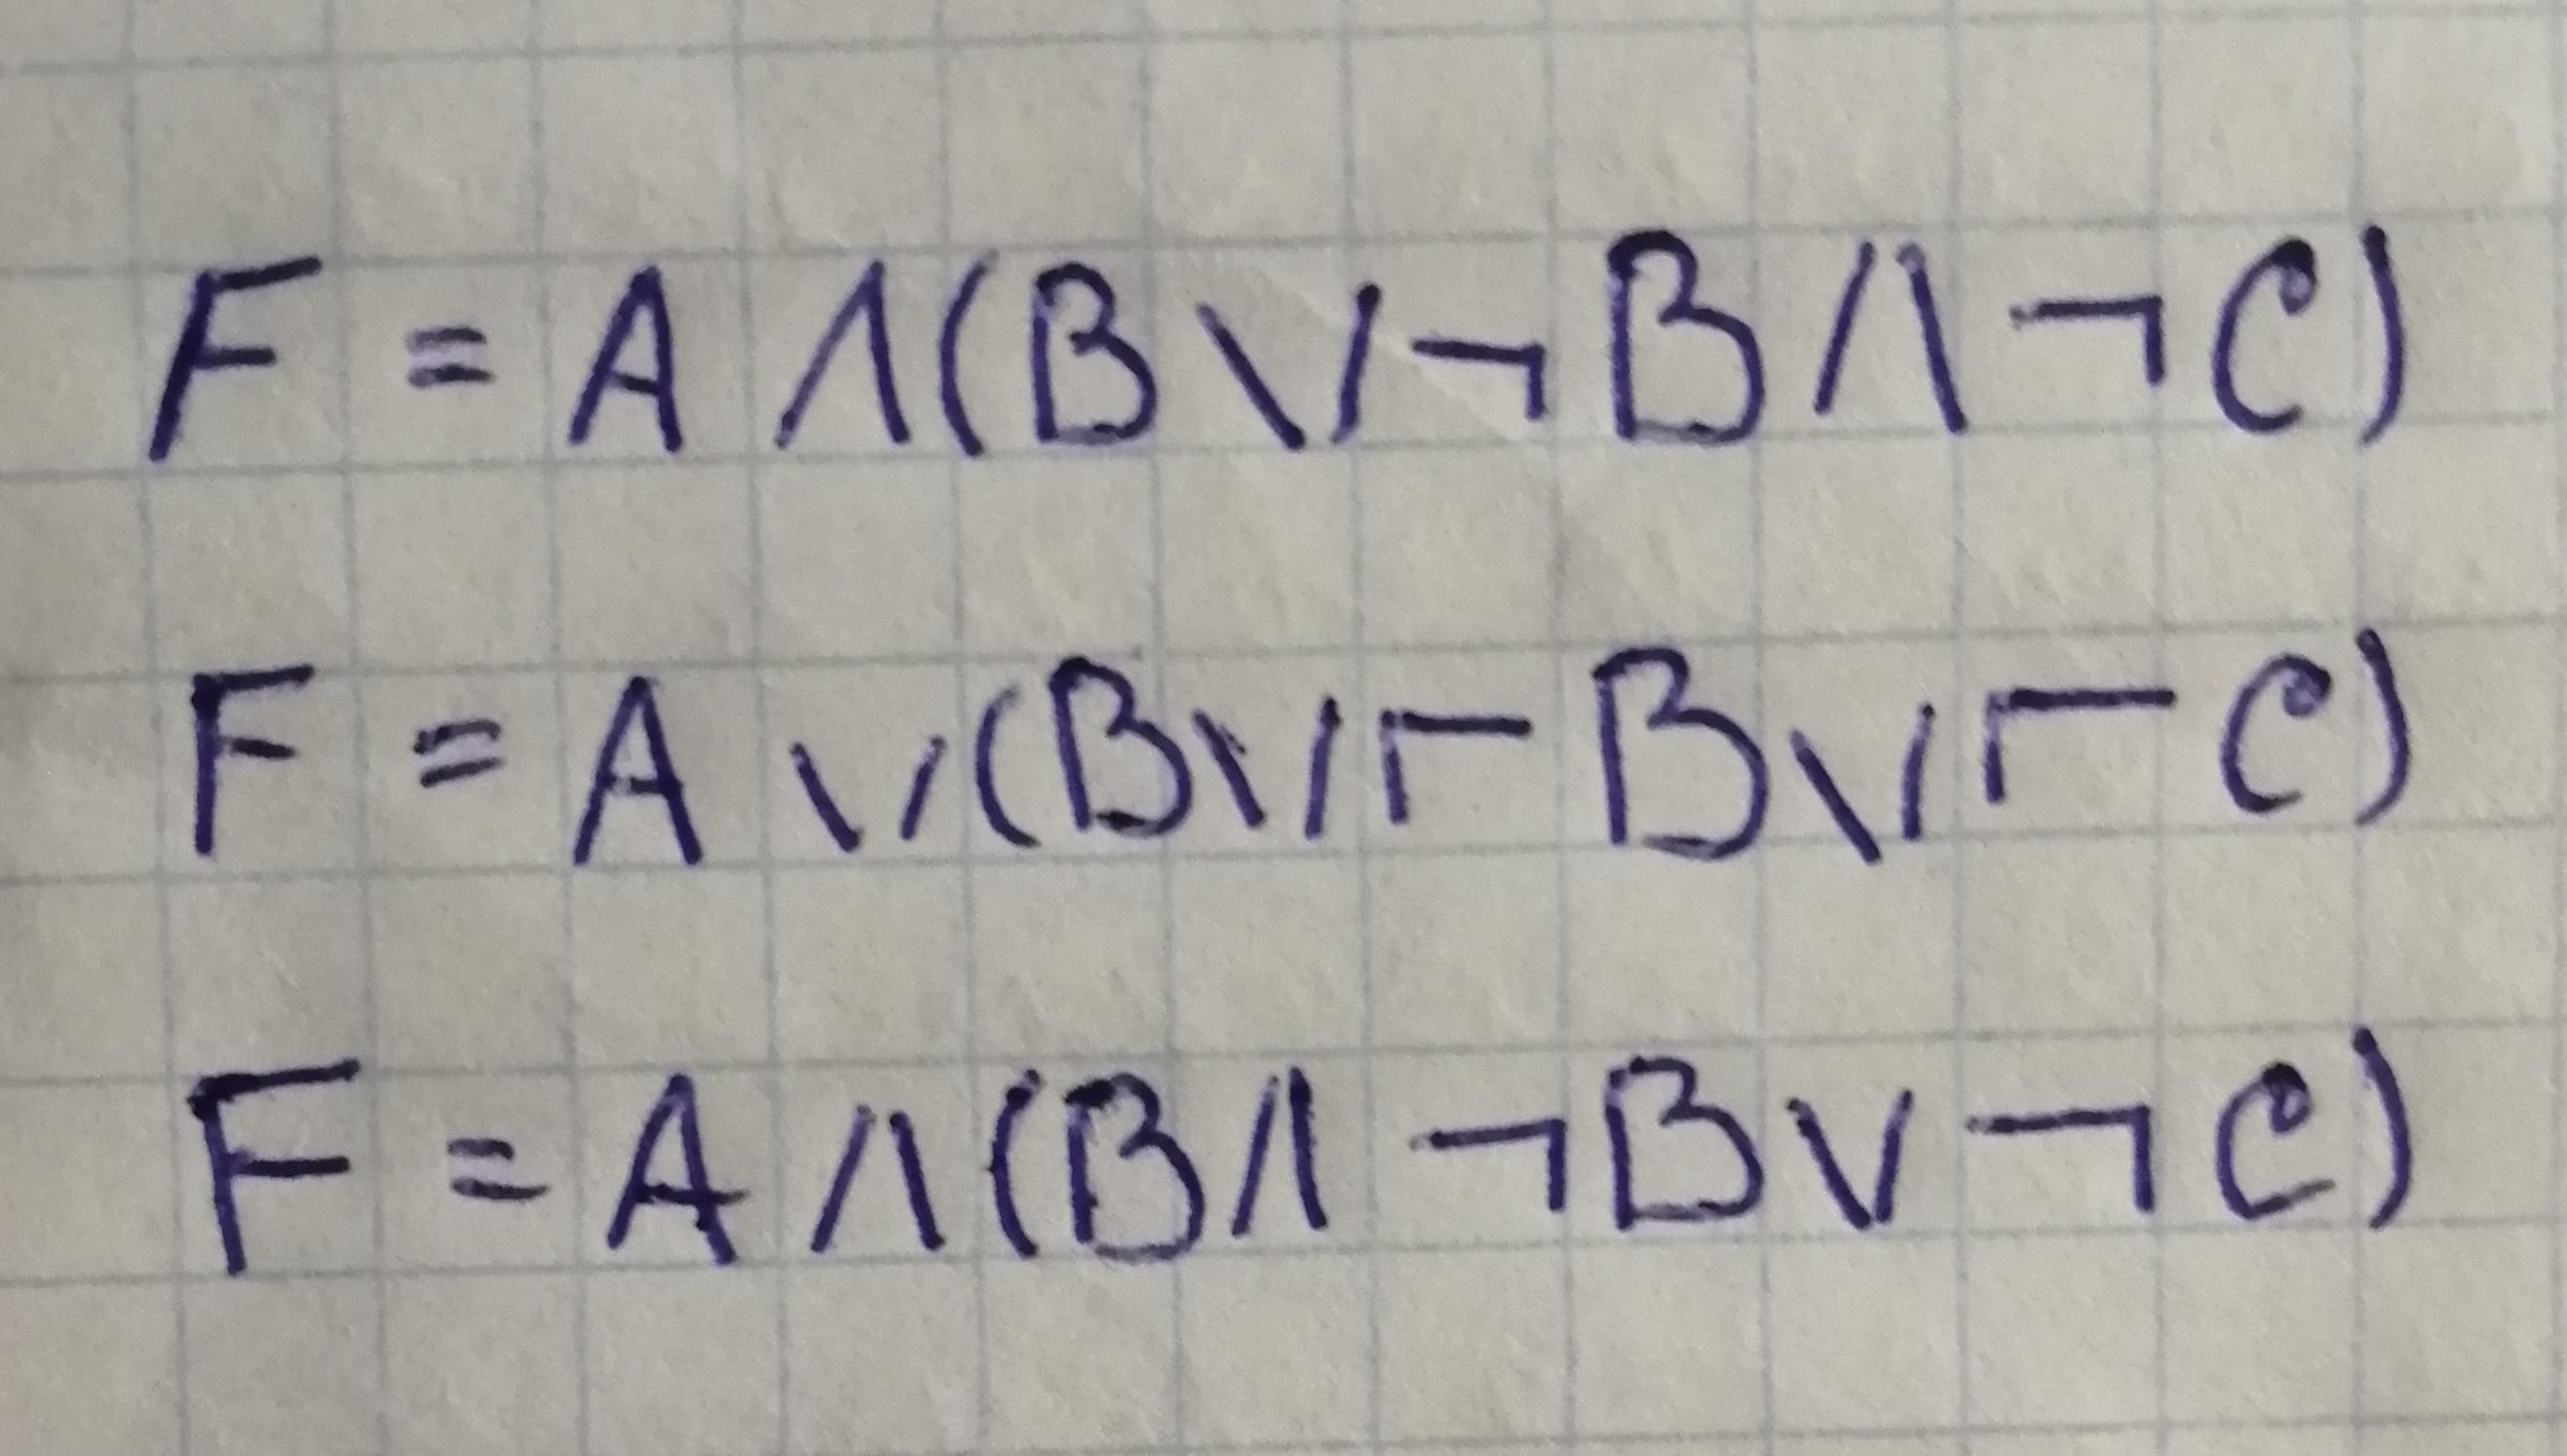 F = A ∧ (B ∨ ¬ B ∧ ¬ C)
F = A ∨ (B ∨ ⌐ B ∨ ⌐ C)
F = A ∧ (B ∧ ¬ B ∨ ¬ C)